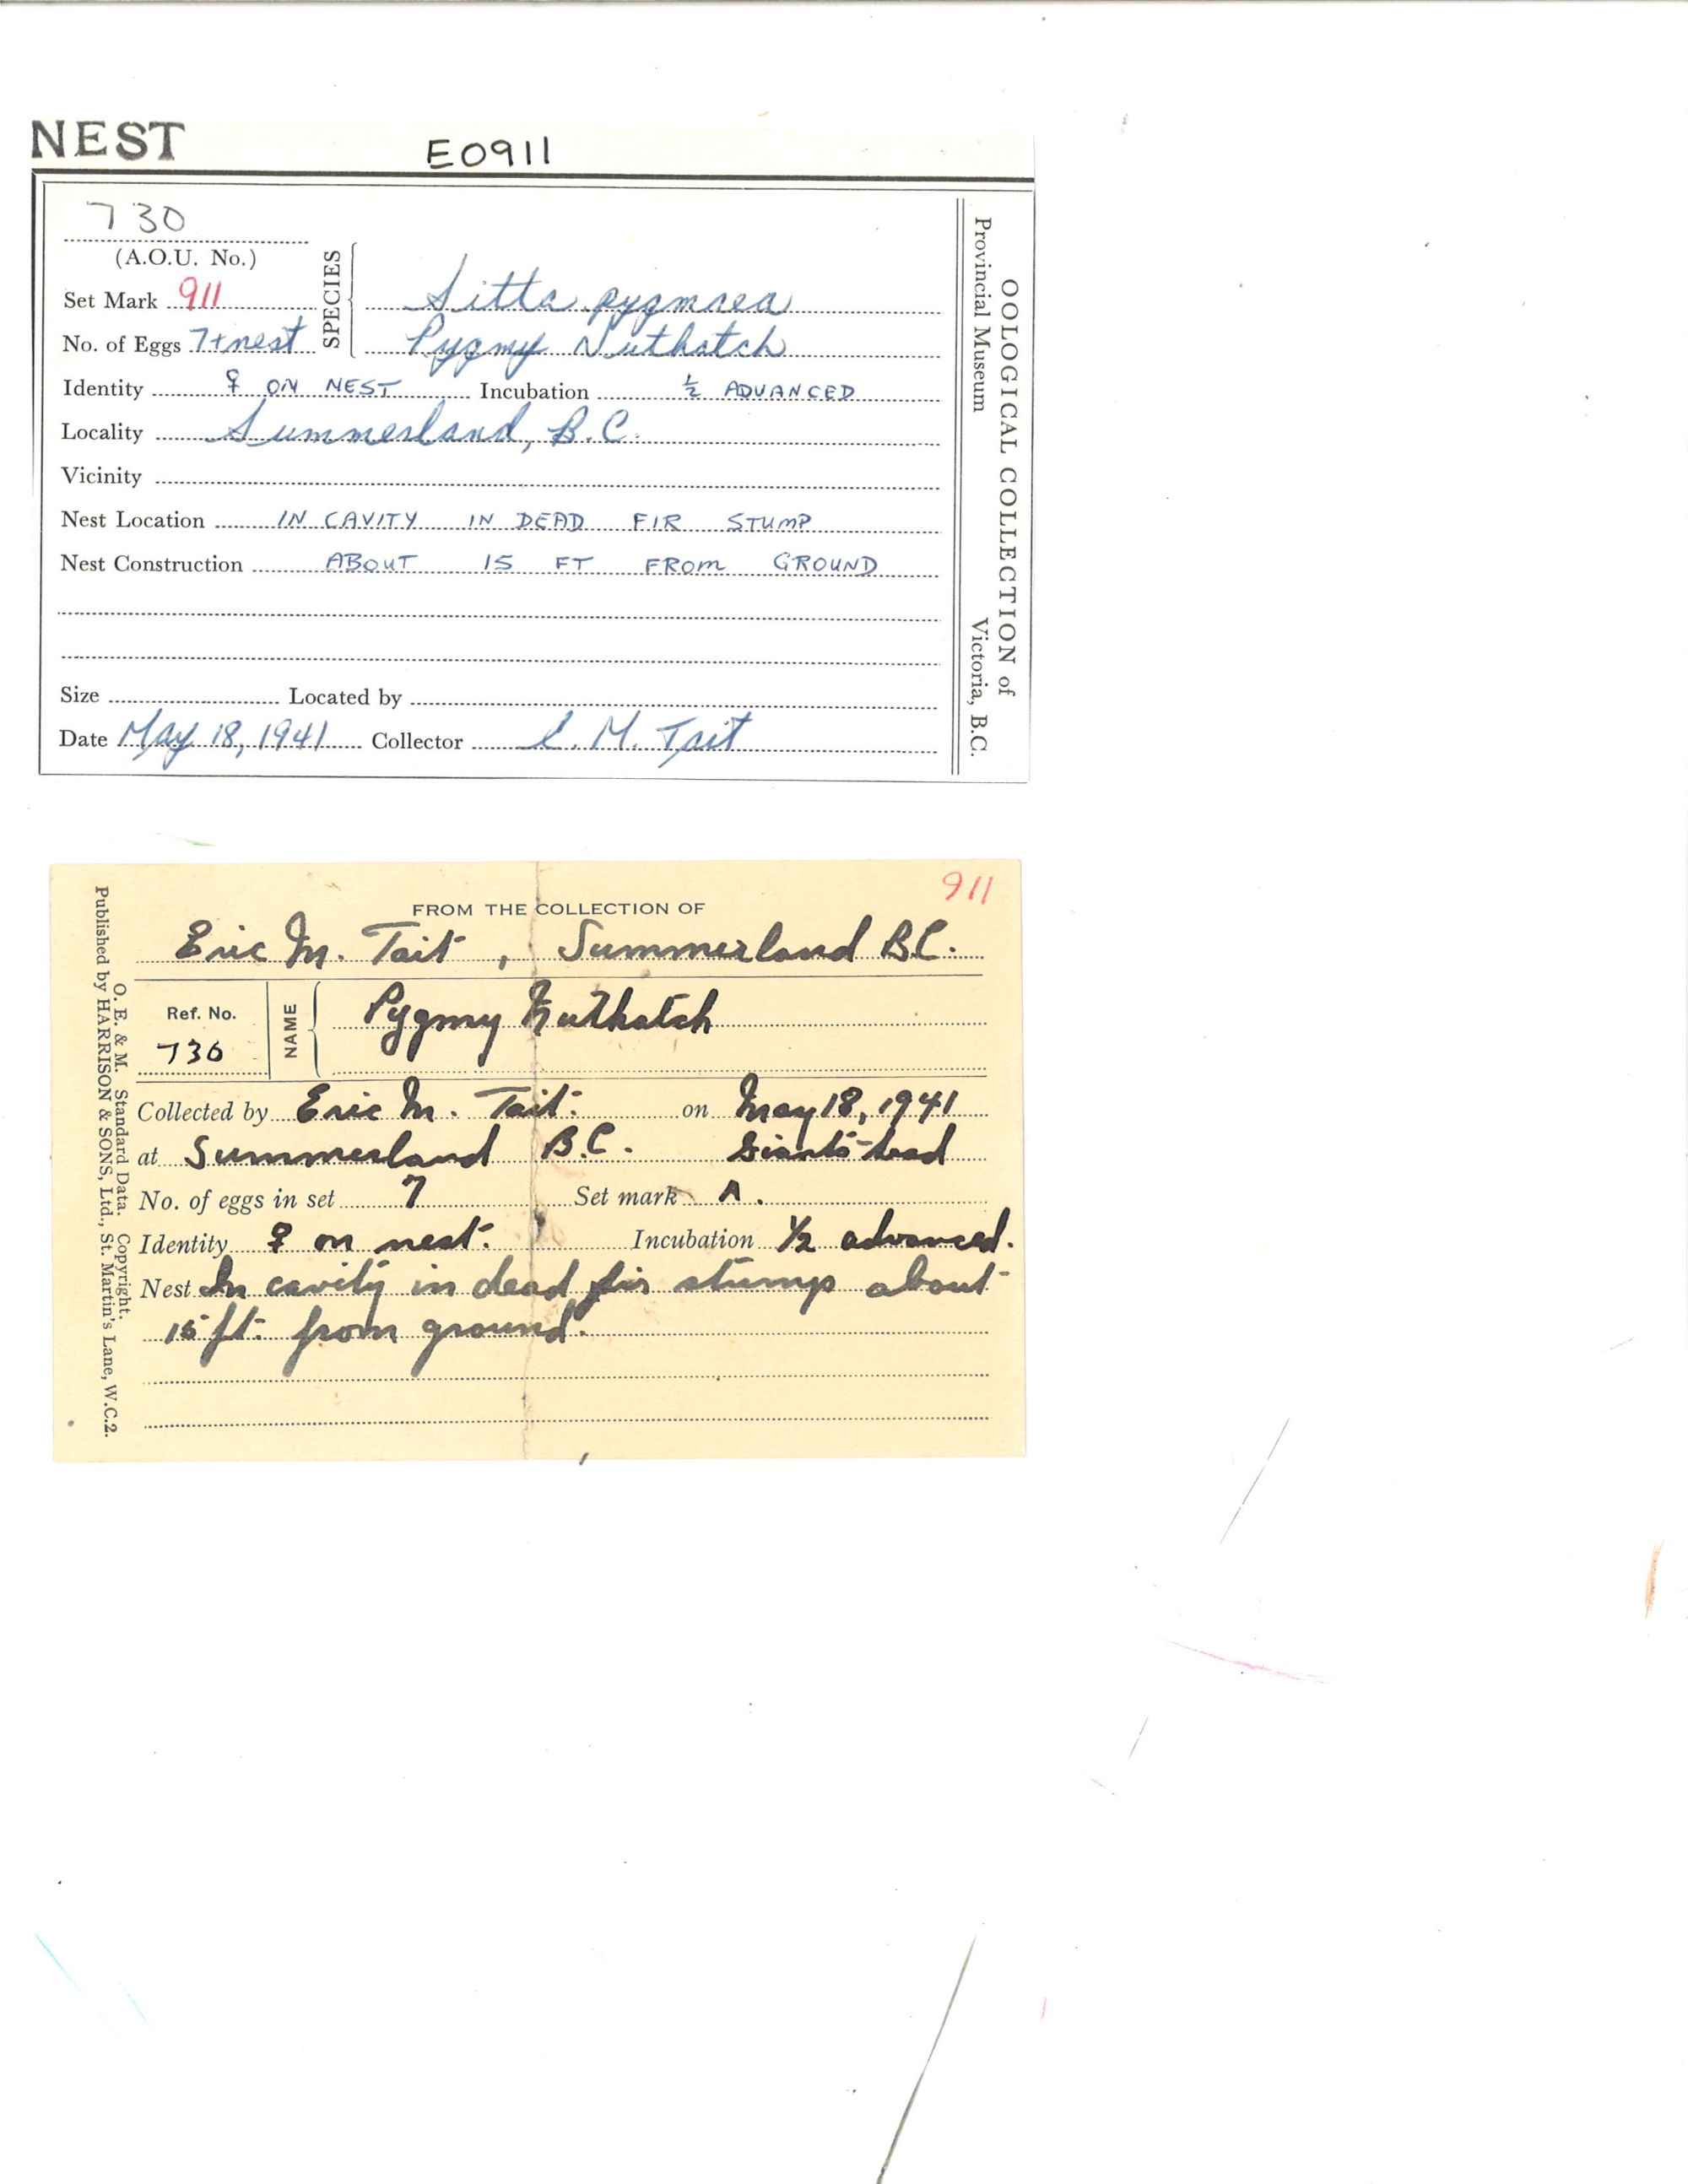 NEST
E0911
730
(A.O.U. No.)
Set Mark 911
No. of Eggs 7+nest
SPECIES
Sitta pygmaea
Pygmy Nuthatch
Identity ♀ ON NEST Incubation ½ ADVANCED
Locality Summerland, B.C.
Vicinity
Nest Location IN CAVITY IN DEAD FIR STUMP
Nest Construction ABOUT 15 FT FROM GROUND
Size Located by
Date May 18, 1941 Collector E. M. Tait
OOLOGICAL COLLECTION of
Provincial Museum Victoria, B.C.
911
FROM THE COLLECTION OF
Eric M. Tait, Summerland B.C.
Ref. No.
730
NAME
Pygmy Nuthatch
Collected by Eric M. Tait. on May 18, 1941
at Summerland B.C. Giants-head
No. of eggs in set 7 Set mark A.
Identity ♀ on nest. Incubation 1/2 advanced.
Nest In cavity in dead fir stump about
15 ft. from ground.
O. E. & M. Standard Data. Copyright.
Published by HARRISON & SONS, Ltd., St. Martin's Lane, W.C.2.